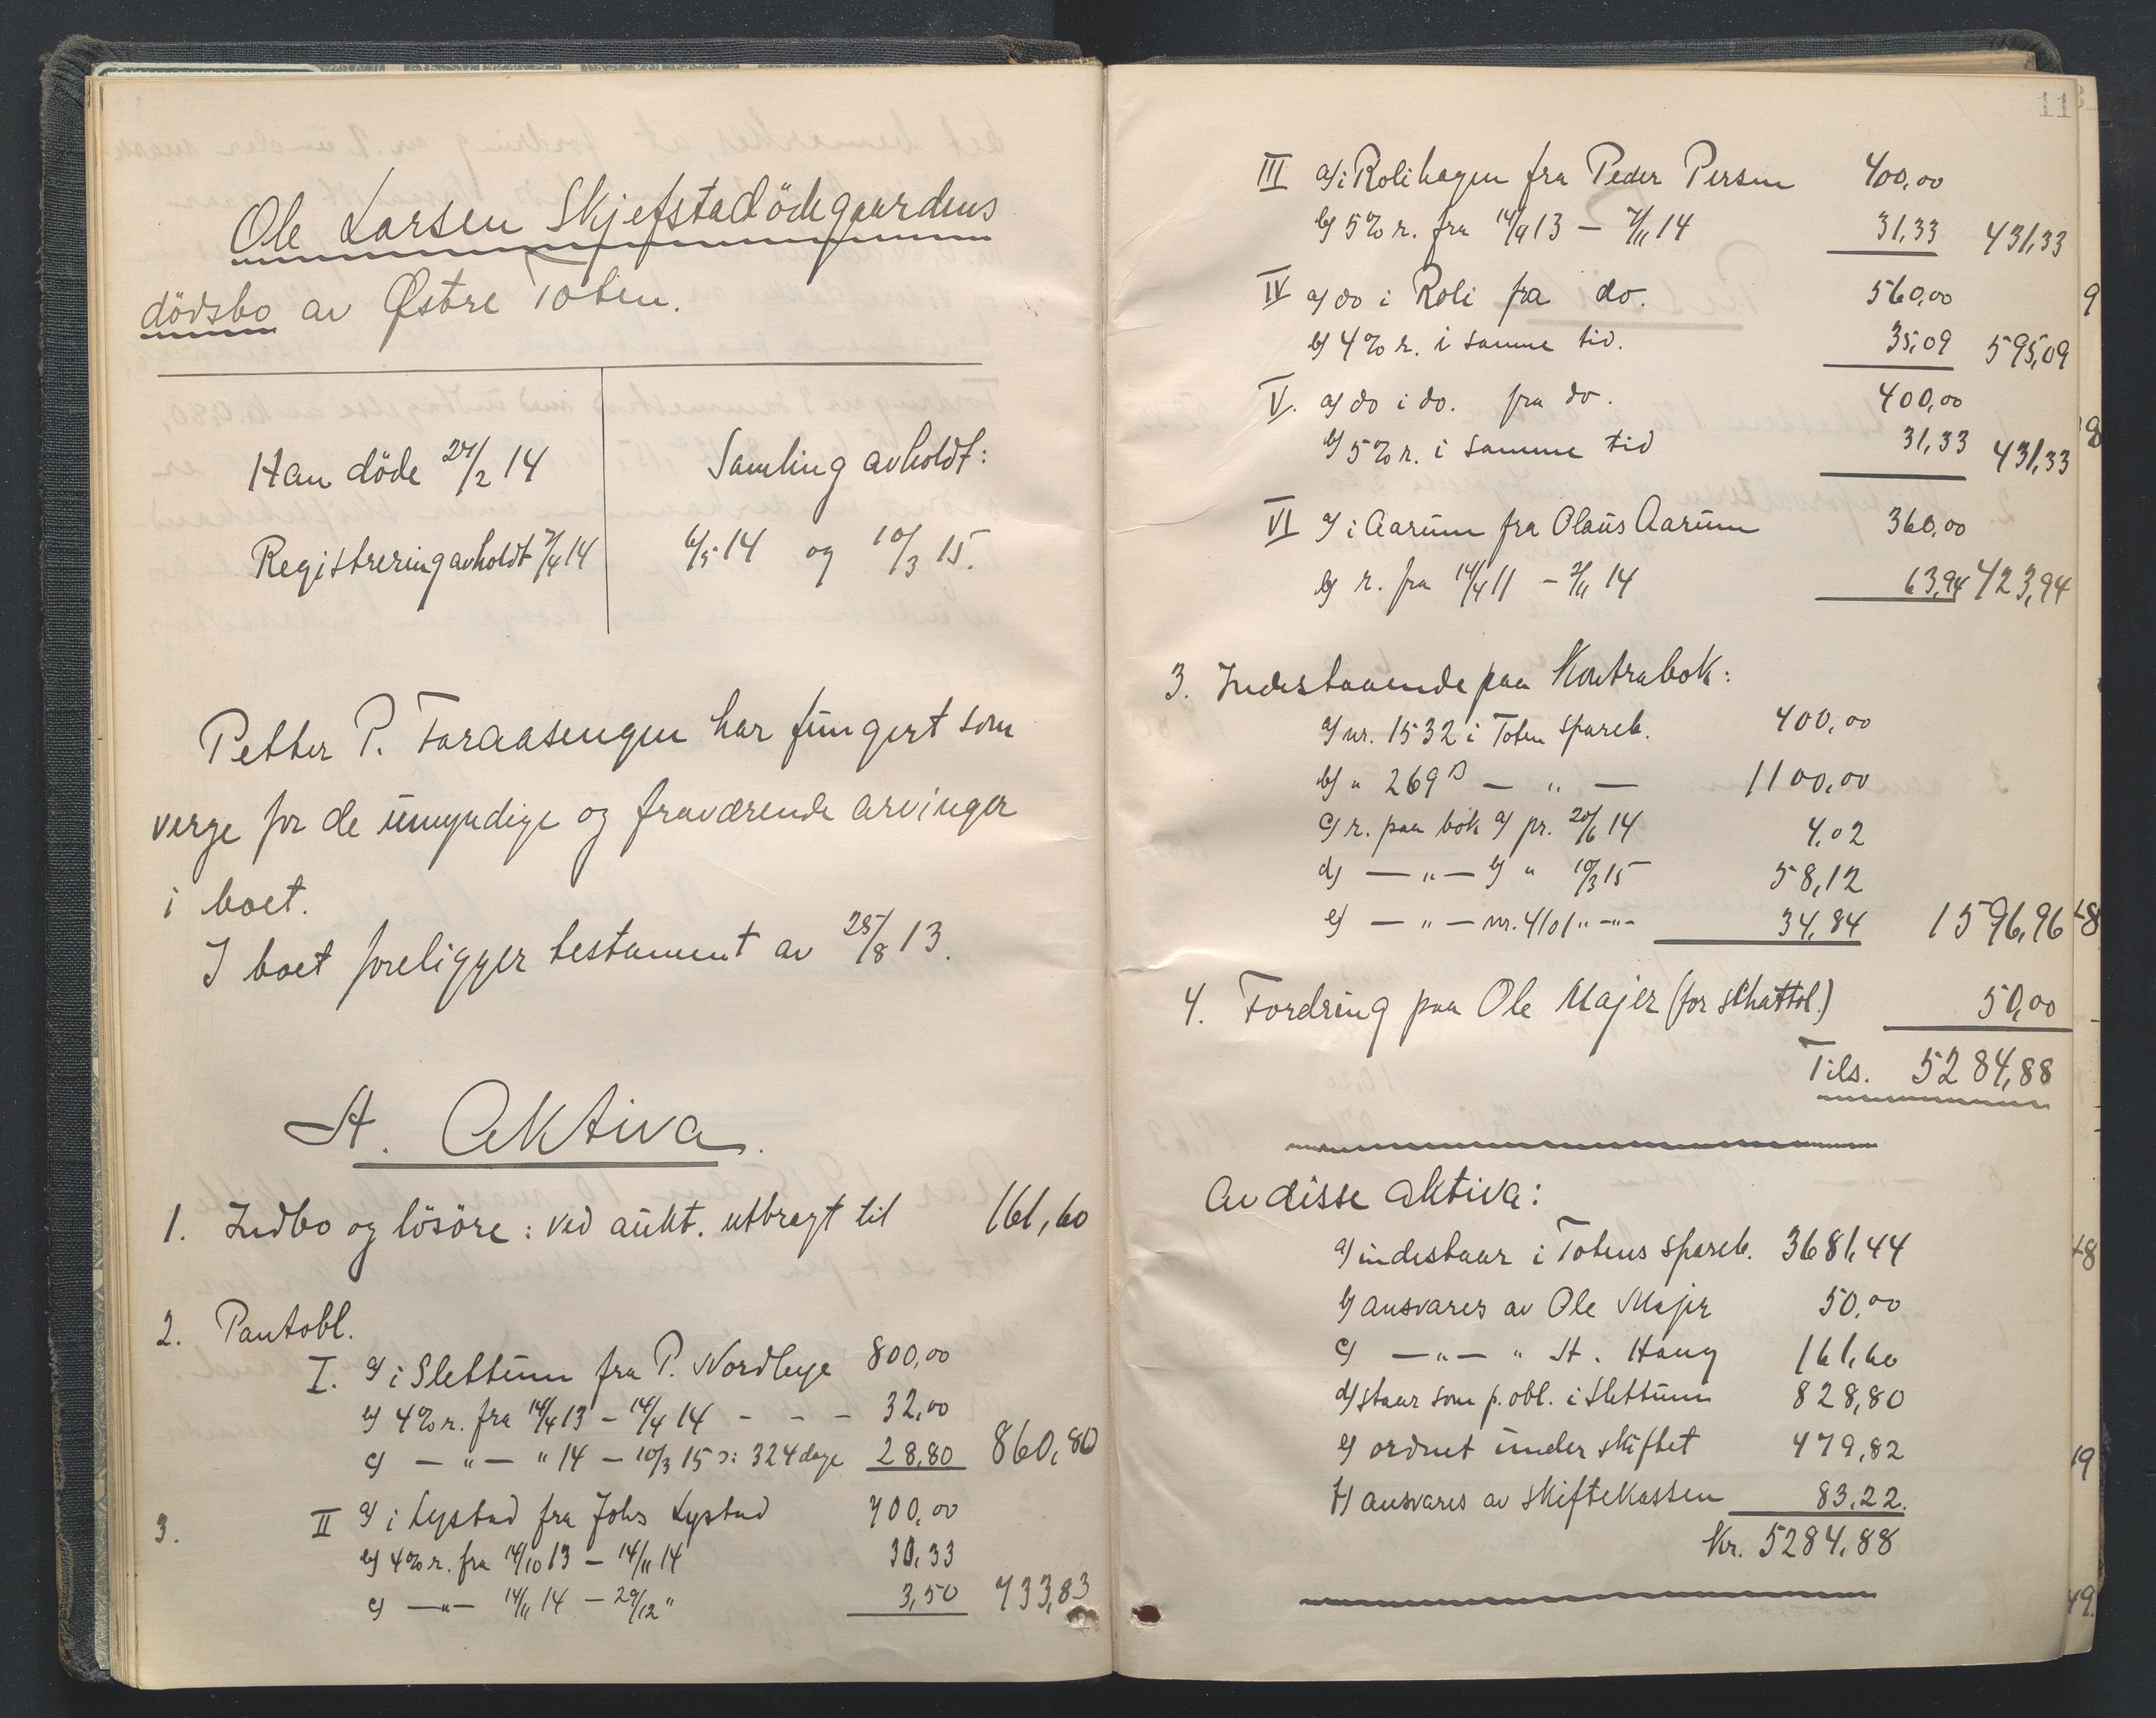 Ole Larsen Skjefstadödegaardens
dödsbo av Østre Toten.
Han döde 24/2 14
Registrering avholdt 7/4 14
Samling avholdt:
6/5 14 og 10/3 15.
Petter P. Faraasengen har fungert som
verge for de umyndige og fraværende arvinger
i boet.
I boet foreligger testament av 25/8 13.
A. Aktiva.
1. Indbo og lösöre: ved aukt. utbragt til 161,60
2. Pantobl.
I. a) i Slettum fra P. Nordlye 800,00
b) 4% r. fra 14/4 13 - 14/4 14 - - - 32,00
c) — " — " 14 - 10/3 15 ɔ: 324 dage 28,80 860,80
3. II a) i Lystad fra Johs Lystad 700,00
b) 4% r. fra 14/10 13 - 14/11 14 30,33
c) — " — 14/11 14 - 29/12 " 3,50 733,83
11
III a) i Rolihagen fra Peder Persen 400,00
b) 5% r. fra 14/4 13 - 7/11 14 31,33 431,33
IV a) do i Roli fra do. 560,00
b) 4% r. i samme tid. 35,09 595,09
V. a) do i do. fra do. 400,00
b) 5% r. i samme tid 31,33 431,33
VI a) i Aarum fra Olaus Aarum 360,00
b) r. fra 14/4 11 - 2/11 14 63,94 423,94
3. Indestaaende paa Kontrabok:
a) nr. 1532 i Toten spareb. 400,00
b) " 269 B — " — 1100,00
c) r. paa bok a) pr. 20/6 14 4,02
d) — " — b) " 10/3 15 58,12
e) — " — nr. 4101 " - " - 34,84 1596,96
4. Fordring paa Ole Majer (for skattol.) 50,00
Tils. 5284,88
Av disse aktiva:
a) indestaar i Totens spareb. 3681,44
b) ansvares av Ole Majer 50,00
c) — " — " H. Haug 161,60
d) staar som p. obl. i Slettum 828,80
e) ordnet under skiftet 479,82
f) ansvares av Skiftekassen 83,22.
Kr. 5284,88